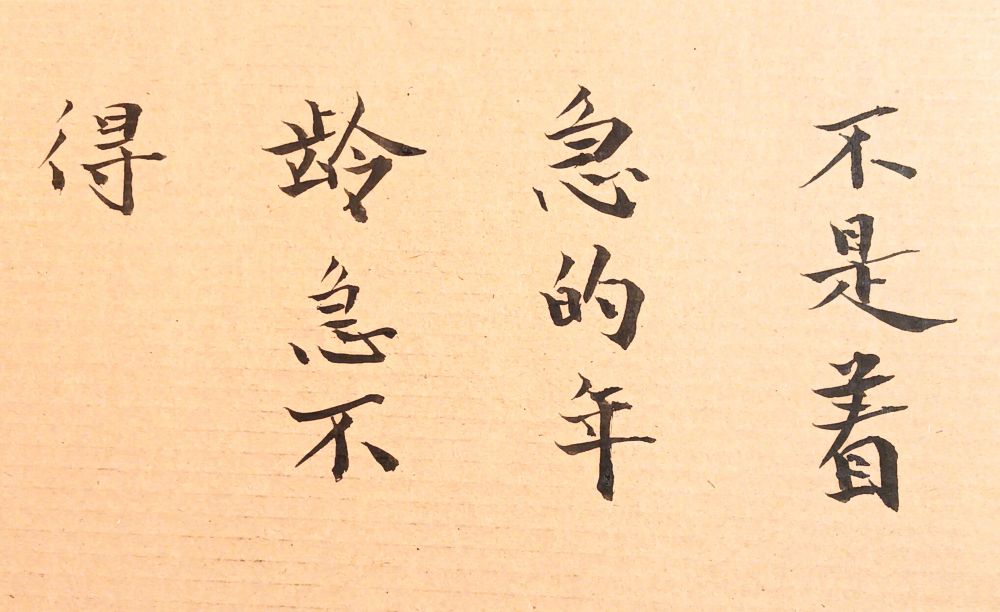 不是着
急的年
龄急不
得